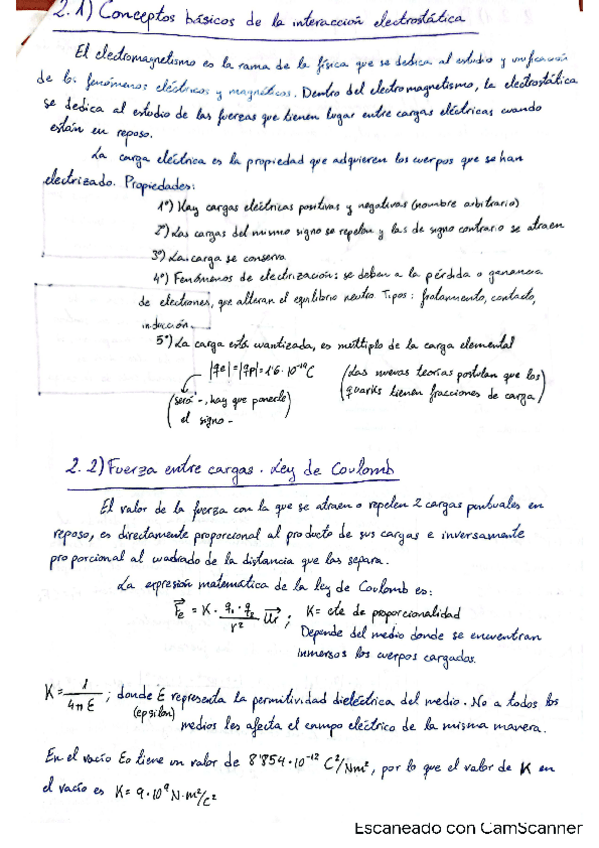 2.1) Conceptos básicos de la interacción electrostática
El electromagnetismo es la rama de la física que se dedica al estudio y unificación
de los fenómenos eléctricos y magnéticos. Dentro del electromagnetismo, la electrostática
se dedica al estudio de las fuerzas que tienen lugar entre cargas eléctricas cuando
están en reposo.
La carga eléctrica es la propiedad que adquieren los cuerpos que se han
electrizado. Propiedades:
1º) Hay cargas eléctricas positivas y negativas (nombre arbitrario)
2º) Las cargas del mismo signo se repelen y las de signo contrario se atraen
3º) La carga se conserva
4º) Fenómenos de electrización: se deben a la pérdida o ganancia
de electrones, que alteran el equilibrio neutro. Tipos: frotamiento, contacto,
inducción.
5º) La carga está cuantizada, es múltiplo de la carga elemental
|qe|=|qp|=1'6·10⁻¹⁹C (Las nuevas teorías postulan que los
quarks tienen fracciones de carga)
(será -, hay que ponerle
el signo -)
2.2) Fuerza entre cargas. Ley de Coulomb
El valor de la fuerza con la que se atraen o repelen 2 cargas puntuales en
reposo, es directamente proporcional al producto de sus cargas e inversamente
proporcional al cuadrado de la distancia que las separa.
La expresión matemática de la ley de Coulomb es:
F⃗e = K · q₁·q₂/r² u⃗r ; K= cte de proporcionalidad
Depende del medio donde se encuentran
inmersos los cuerpos cargados.
K = 1/4πε ; donde ε representa la permitividad dieléctrica del medio. No a todos los
(epsilon) medios les afecta el campo eléctrico de la misma manera.
En el vacío εo tiene un valor de 8'854·10⁻¹² C²/Nm², por lo que el valor de K en
el vacío es K= 9·10⁹ N·m²/C²
Escaneado con CamScanner